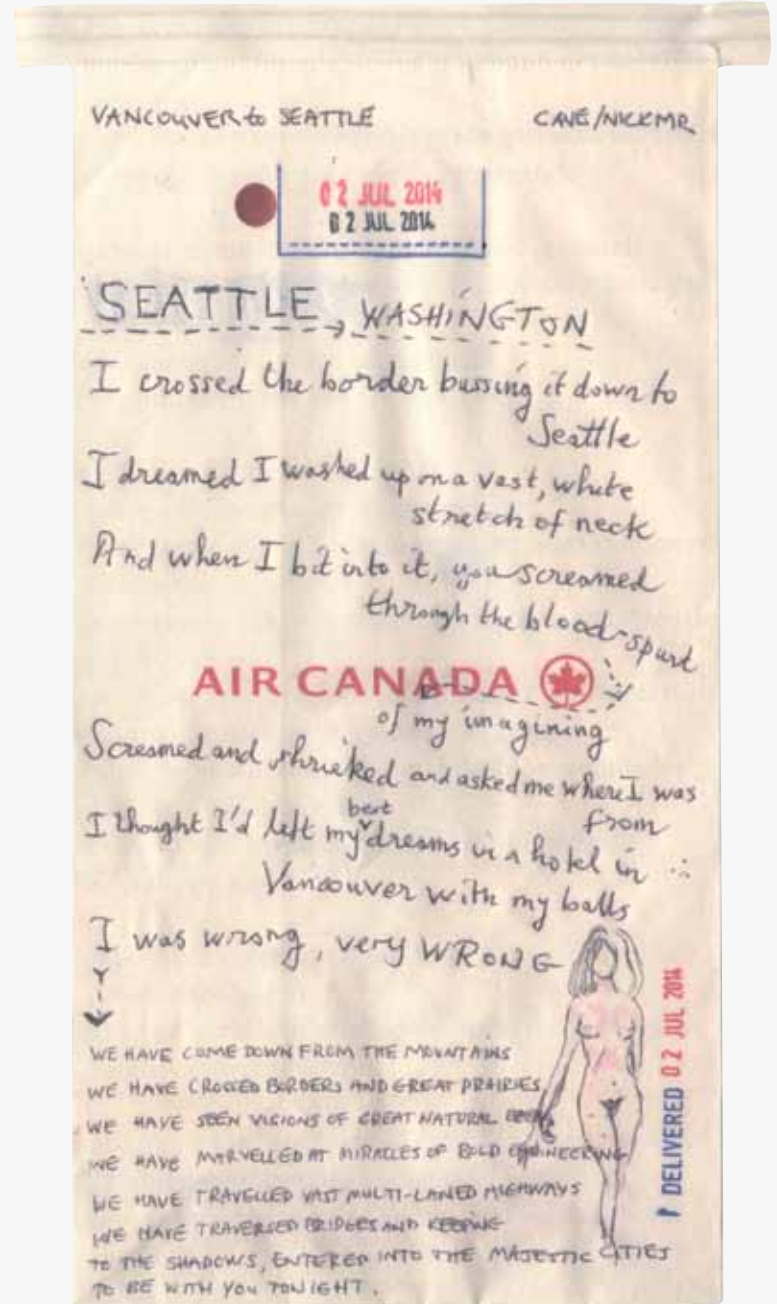 VANCOUVER to SEATTLE CAVE/NICKMR
02 JUL 2014
02 JUL 2014
SEATTLE, WASHINGTON
I crossed the border bussing it down to
Seattle
I dreamed I washed up on a vast, white
stretch of neck
And when I bit into it, you screamed
through the blood-spurt
AIR CANADA
of my imagining
Screamed and shrieked and asked me where I was
from
I thought I'd left my best dreams in a hotel in
Vancouver with my balls
I was wrong, very WRONG
WE HAVE COME DOWN FROM THE MOUNTAINS
WE HAVE CROSSED BORDERS AND GREAT PRAIRIES
WE HAVE SEEN VISIONS OF GREAT NATURAL
WE HAVE MARVELLED AT MIRACLES OF BOLD ENGINEERING
WE HAVE TRAVELLED VAST MULTI-LANED HIGHWAYS
WE HAVE TRAVERSED BRIDGES AND KEEPING
TO THE SHADOWS, ENTERED INTO THE MAJESTIC CITIES
TO BE WITH YOU TONIGHT.
DELIVERED 02 JUL 2014